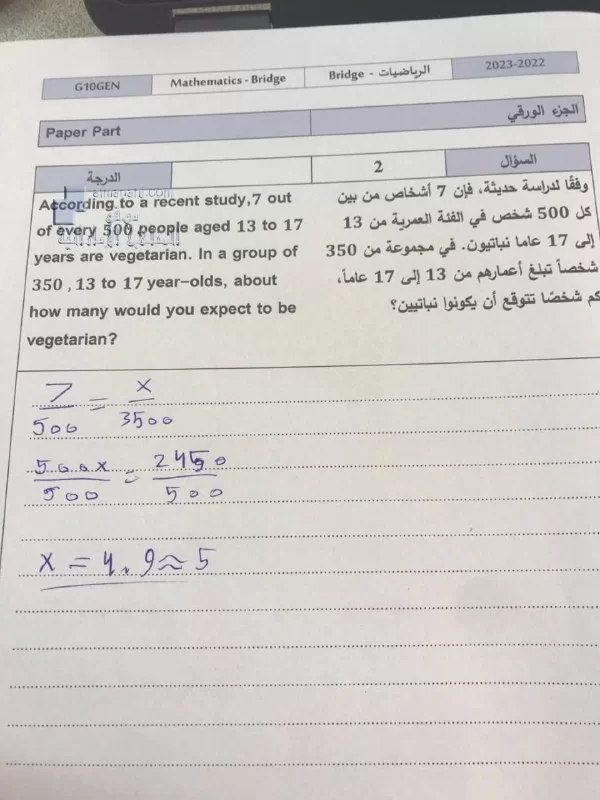 G10GEN
Mathematics - Bridge
Bridge - الرياضيات
2023-2022
Paper Part
الجزء الورقي
الدرجة
2
السؤال
According to a recent study,7 out
of every 500 people aged 13 to 17
years are vegetarian. In a group of
350 , 13 to 17 year-olds, about
how many would you expect to be
vegetarian?
وفقًا لدراسة حديثة، فإن 7 أشخاص من بين
كل 500 شخص في الفئة العمرية من 13
إلى 17 عاما نباتيون. في مجموعة من 350
شخصاً تبلغ أعمارهم من 13 إلى 17 عاماً،
كم شخصًا تتوقع أن يكونوا نباتيين؟
7/500 = x/3500
500x/500 = 2450/500
x = 4.9 ≈ 5